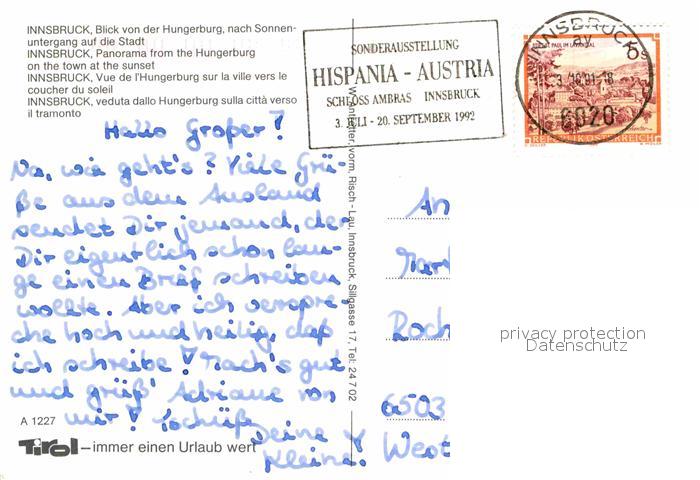 INNSBRUCK, Blick von der Hungerburg, nach Sonnen-
untergang auf die Stadt
INNSBRUCK, Panorama from the Hungerburg
on the town at the sunset
INNSBRUCK, Vue de l'Hungerburg sur la ville vers le
coucher du soleil
INNSBRUCK, veduta dallo Hungerburg sulla città verso
il tramonto
SONDERAUSSTELLUNG
HISPANIA - AUSTRIA
SCHLOSS AMBRAS INNSBRUCK
3. JULI - 20. SEPTEMBER 1992
INNSBRUCK
ay
6020
5s
STIFT ST. PAUL IM LAVANTTAL
REPUBLIK ÖSTERREICH
Hallo Großer!
Na, wie geht's? Viele Grü-
ße aus dem Ausland
sendet Dir jemand, der
Dir eigentlich schon lan-
ge einen Brief schreiben
wollte. Aber ich verspre-
che hoch und heilig, daß
ich schreibe! Mach's gut
und grüß' Adriane von
mir! Tschüß
Deine
Kleine!
An
Roch
6503
West
vorm. Risch-Lau, Innsbruck, Sillgasse 17, Tel: 24 7 02
A 1227
Tirol – immer einen Urlaub wert
privacy protection
Datenschutz